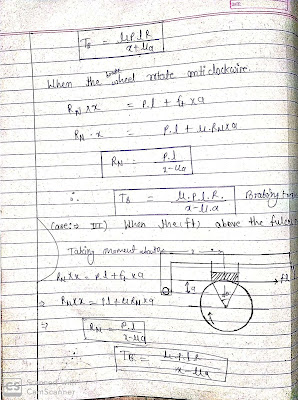 T_B = μ.P.l.R / x+μa
When the brake wheel rotate anticlockwise.
R_N × x = P.l + f_t × a
R_N · x = P.l + μ.R_N × a
R_N = P.l / x-μa
∴ T_B = μ.P.l.R. / x-μ.a Braking
Case:⇒ III) When the (ft) above the
Taking moment about
R_N × x = P.l + f_t × a
⇒ R_N × x = Pl + μ R_N × a
⇒ R_N = P.l / x-μa
T_B = μ.P.l.R / x-μa
CS
CamScanner